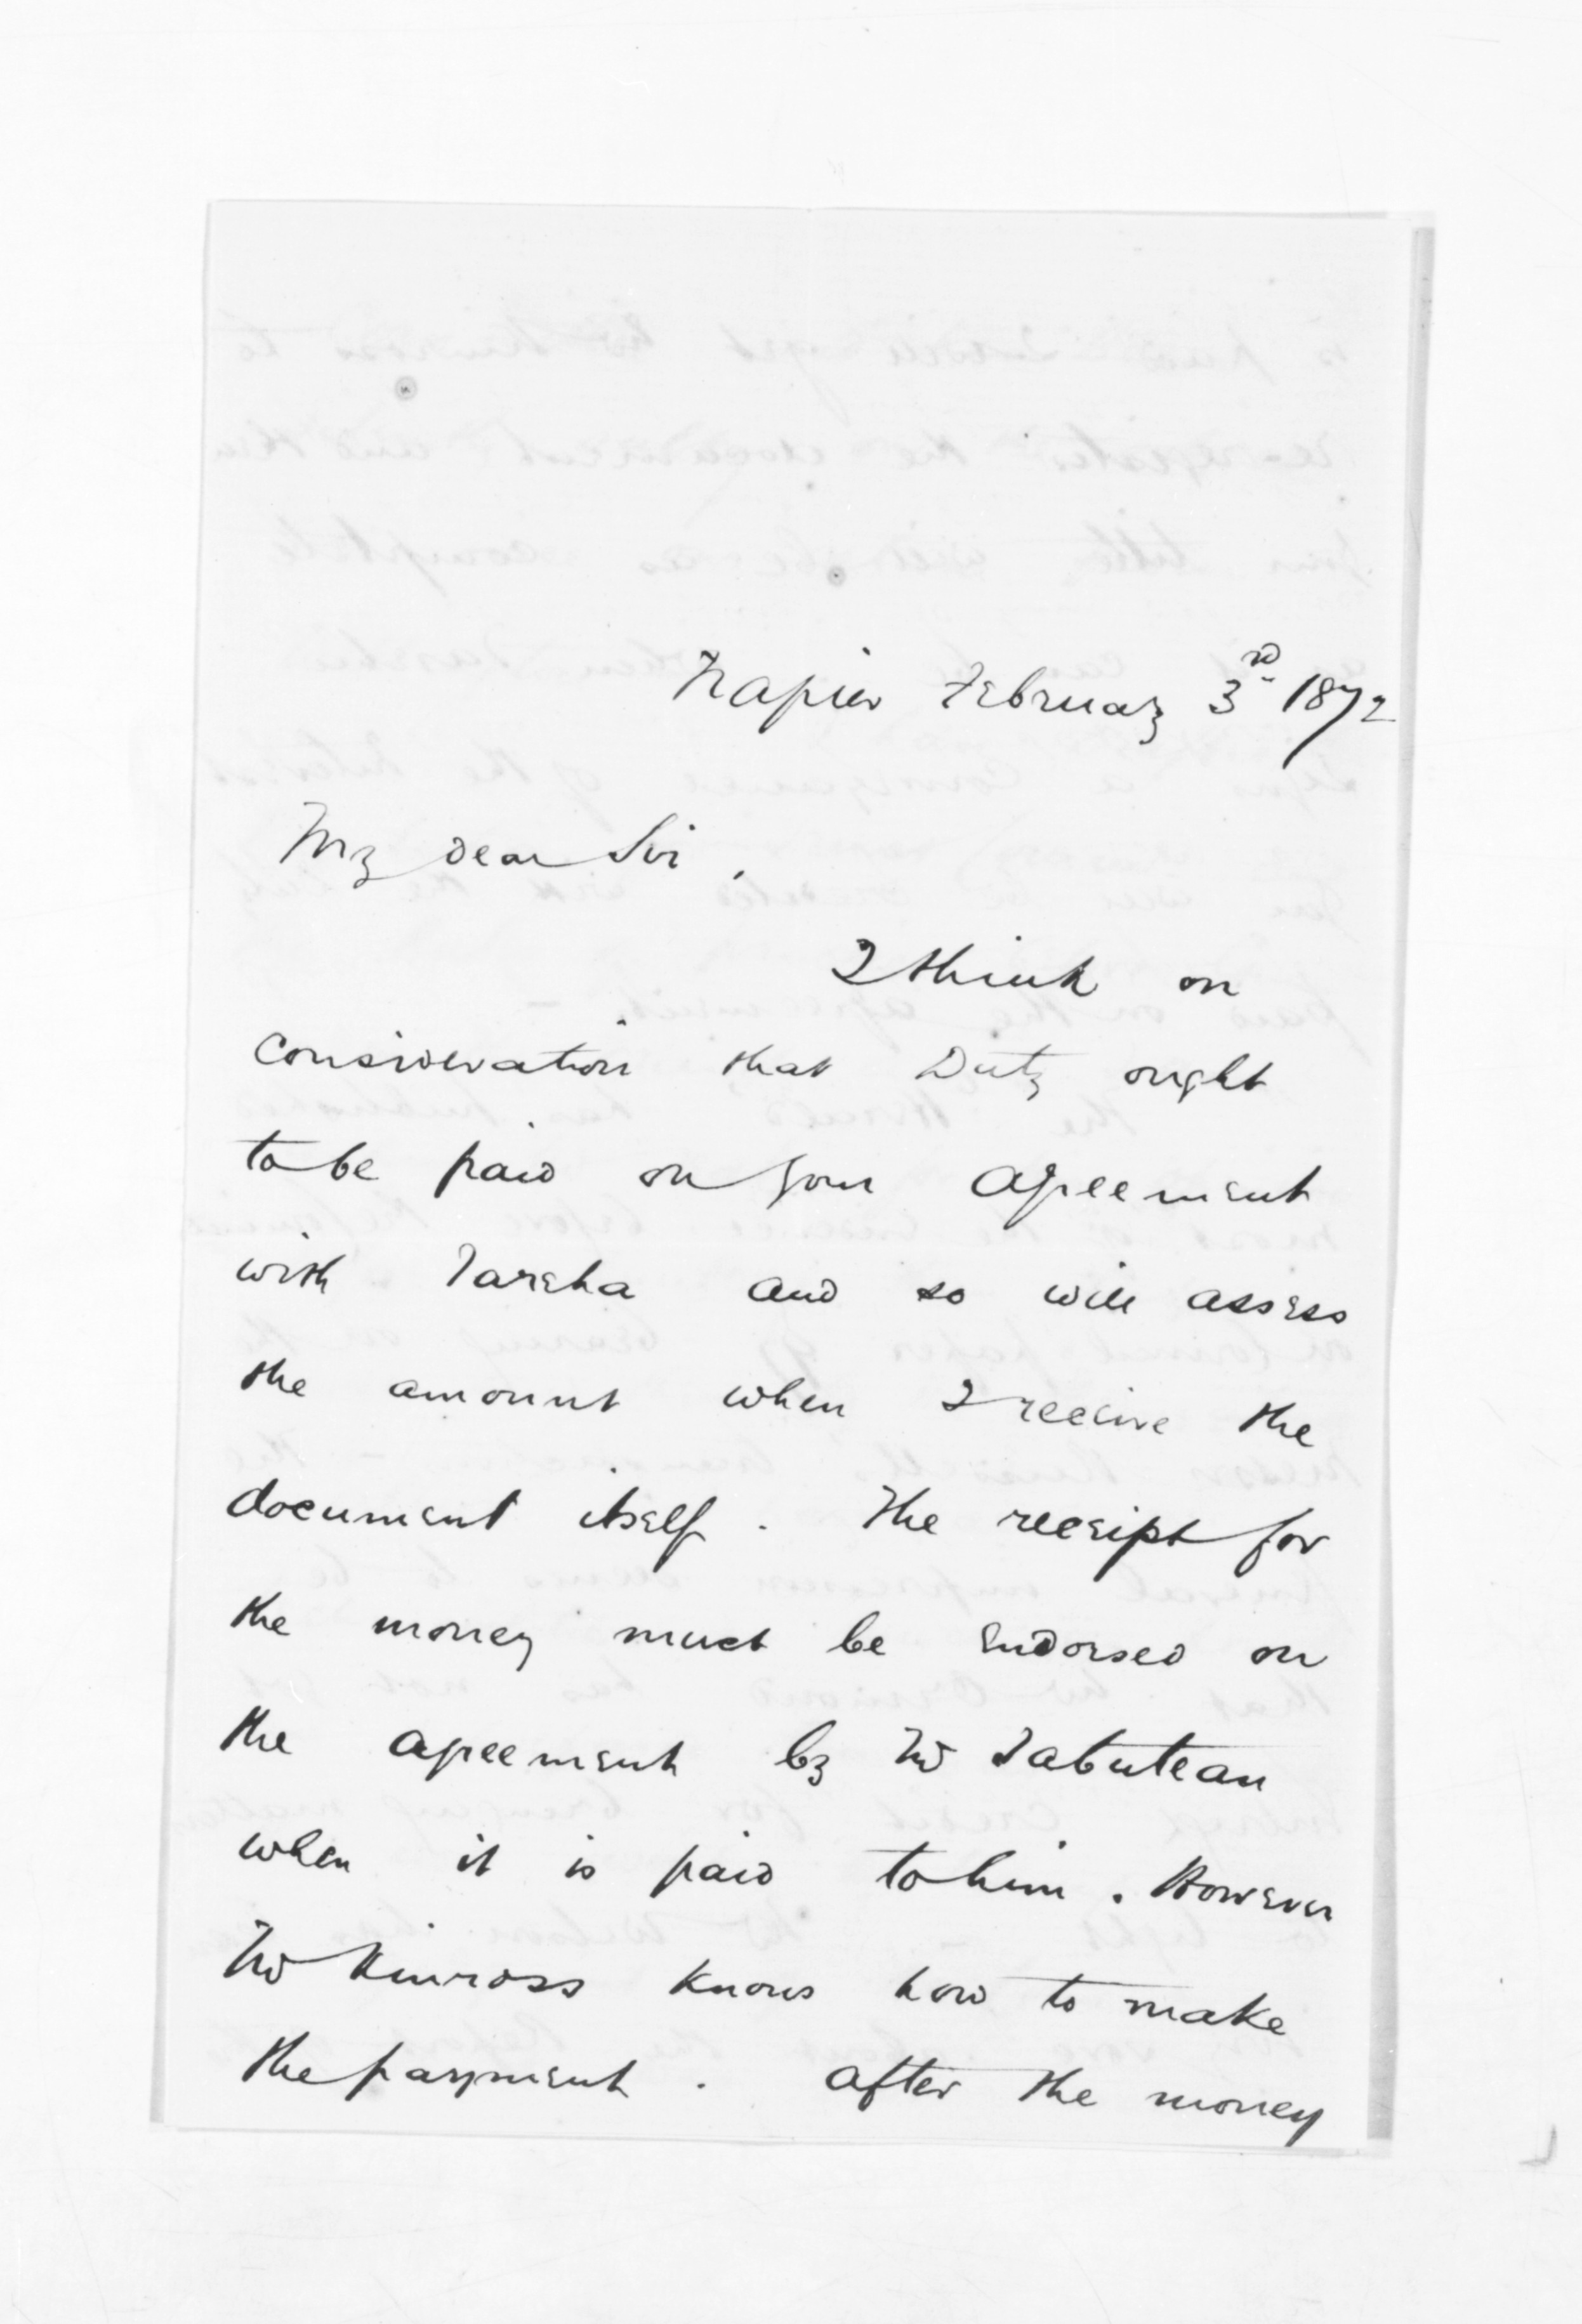 Napier February 3rd 1872
My dear Sir,
I think on
consideration that Duty ought
to be paid on your agreement
with Tareha and so will assess
the amount when I receive the
document itself. The receipt for
the money must be endorsed on
the agreement by Mr Tabuteau
when it is paid to him. However
Mr Kinross knows how to make
the payment. After the money